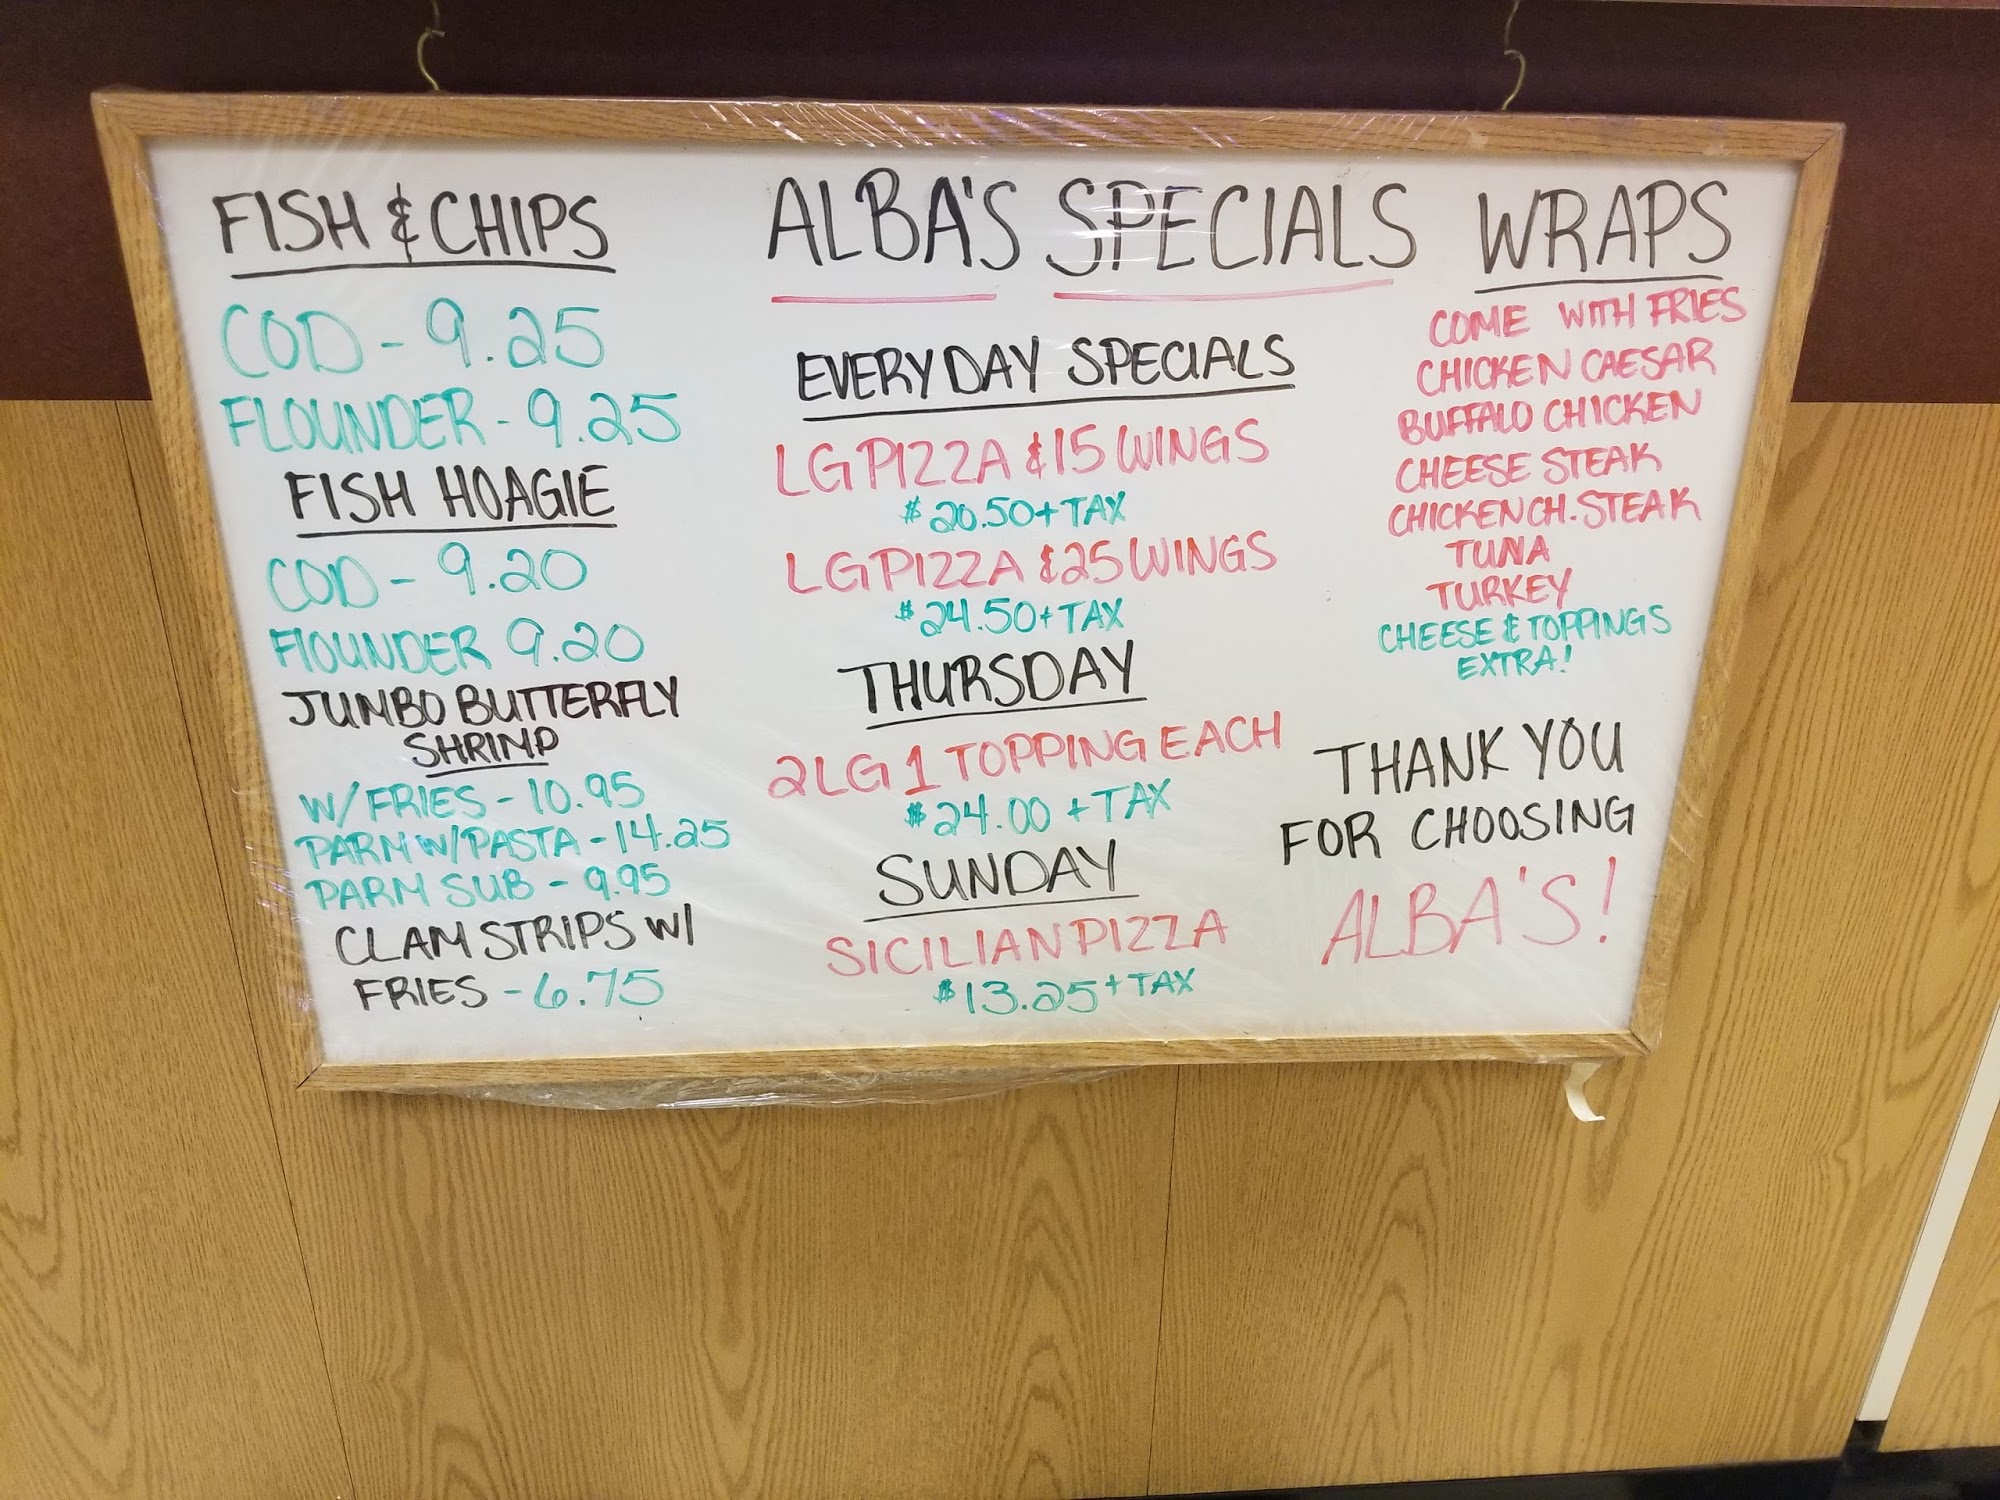 FISH & CHIPS
COD - 9.25
FLOUNDER - 9.25
FISH HOAGIE
COD - 9.20
FlOUNDER 9.20
JUMBO BUTTERFLY
SHRIMP
W/ FRIES - 10.95
PARM W/PASTA - 14.25
PARM SUB - 9.95
CLAM STRIPS W/
FRIES - 6.75
ALBA'S SPECIALS
EVERYDAY SPECIALS
LG PIZZA & 15 WINGS
$20.50 + TAX
LG PIZZA & 25 WINGS
$24.50 + TAX
THURSDAY
2 LG 1 TOPPING EACH
$24.00 + TAX
SUNDAY
SICILIAN PIZZA
$13.25 + TAX
WRAPS
COME WITH FRIES
CHICKEN CAESAR
BUFFALO CHICKEN
CHEESE STEAK
CHICKEN CH. STEAK
TUNA
TURKEY
CHEESE & TOPPINGS
EXTRA!
THANK YOU
FOR CHOOSING
ALBA'S!